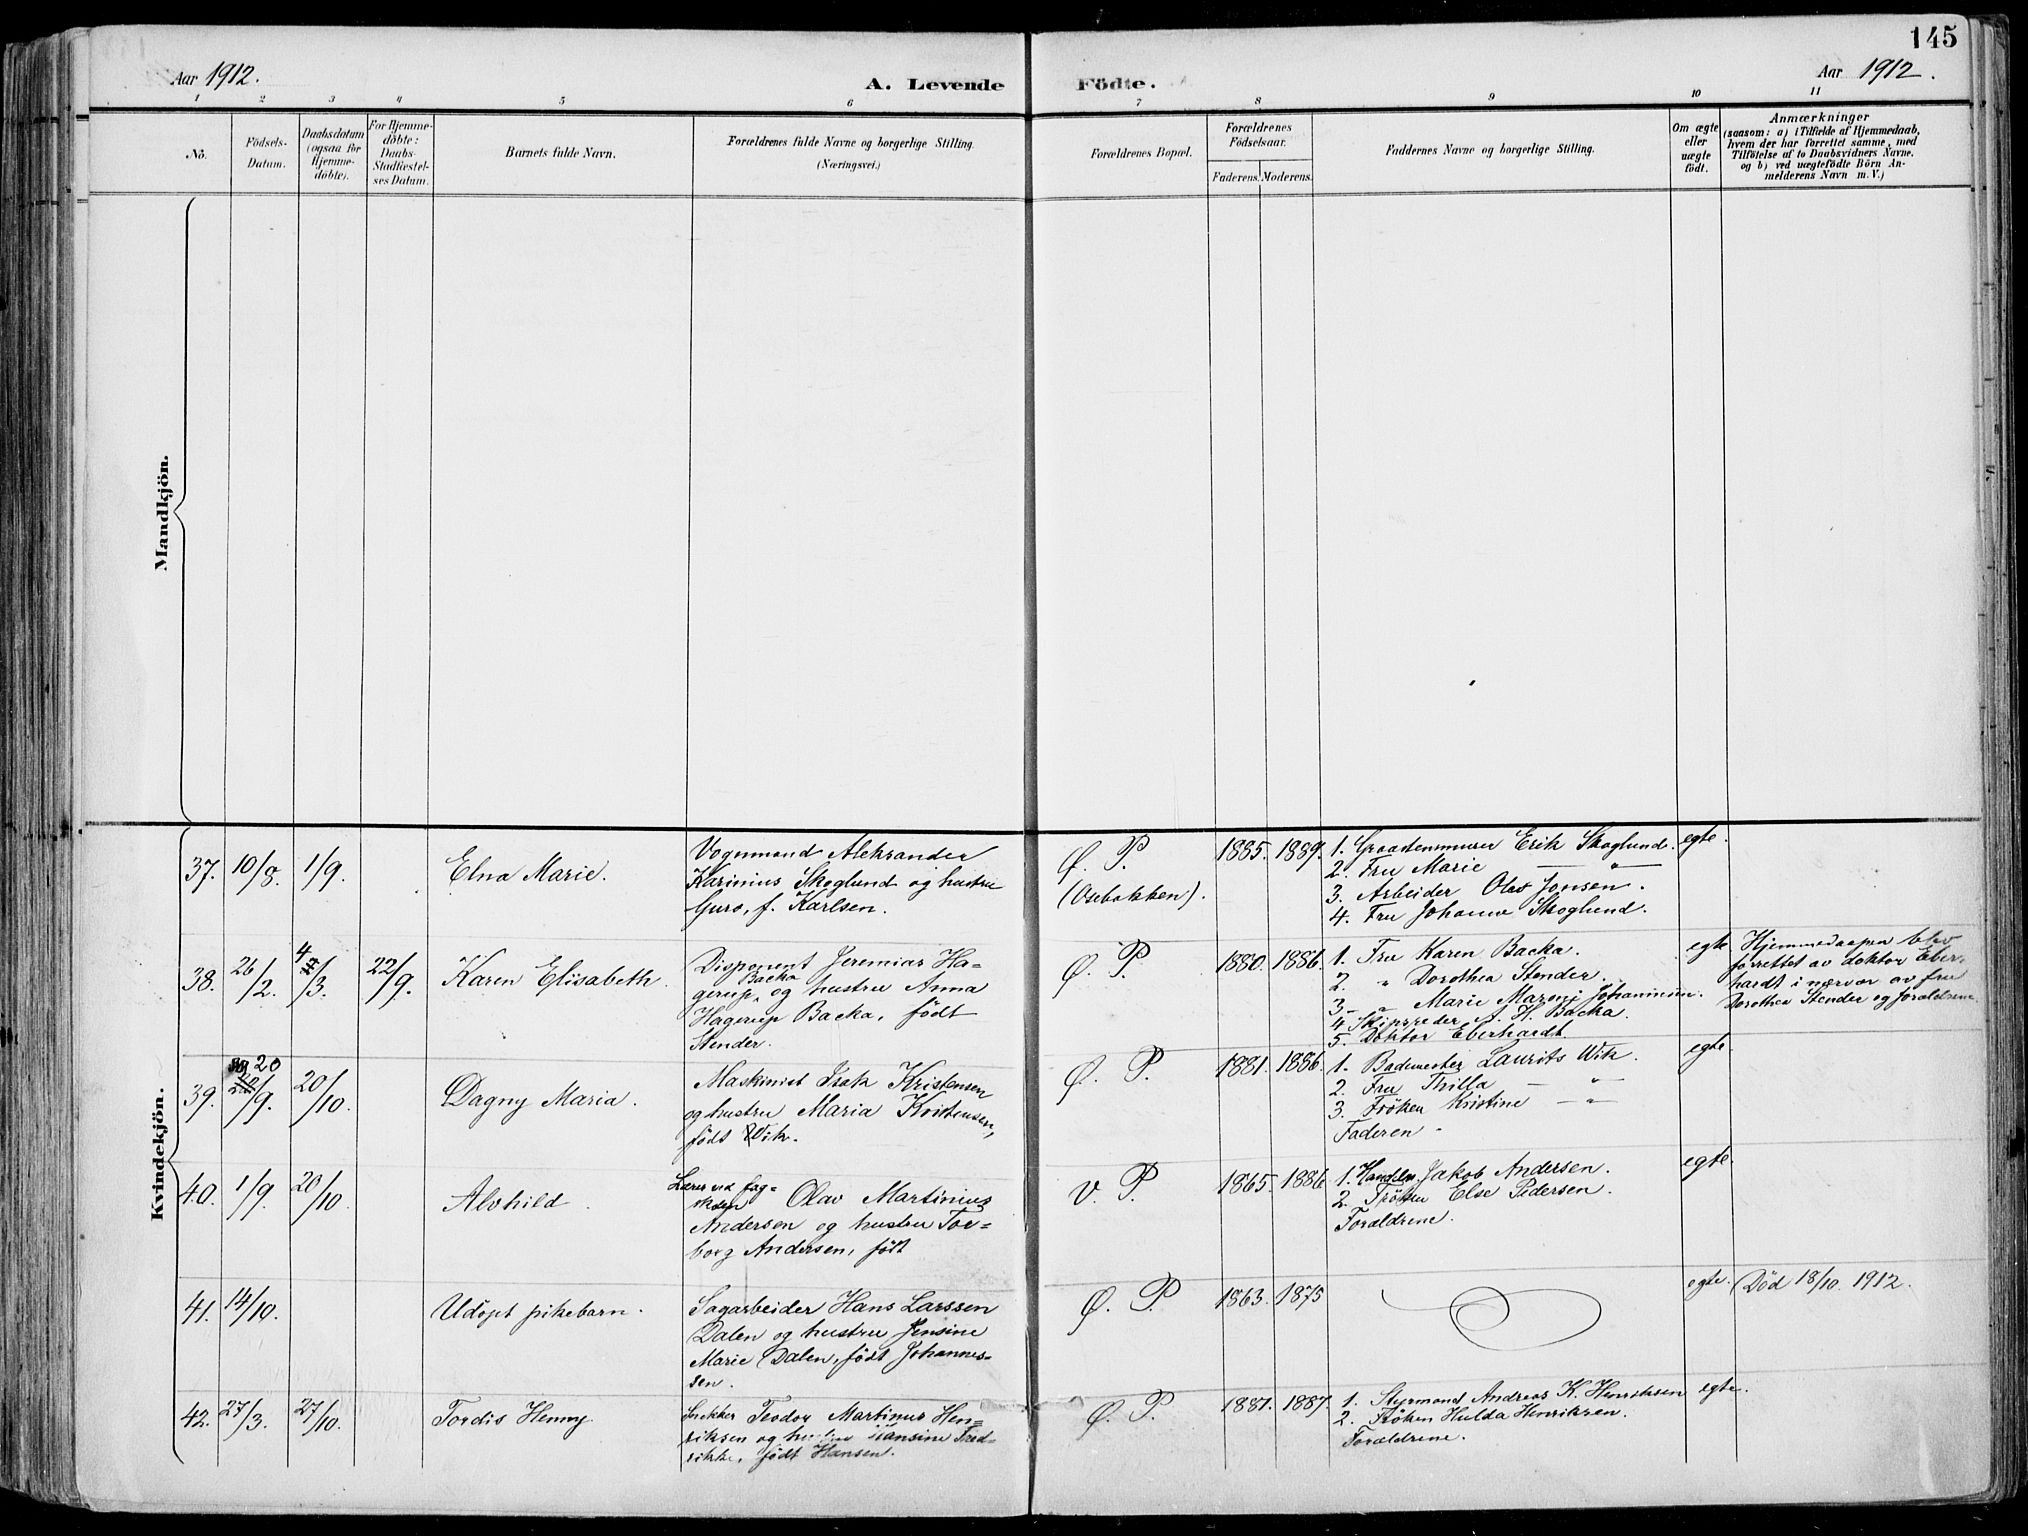 145
Aar 1912.
A. Levende Födte.
Aar 1912.
1 2 3 4 5 6 7 8 9 10 11
No.
Födsels-
Datum.
Daabsdatum
(ogsaa for
Hjemme-
döbte).
For Hjemme-
döbte:
Daabs-
Stadfæstel-
ses Datum.
Barnets fulde Navn.
Forældrenes fulde Navne og borgerlige Stilling.
(Næringsvei.)
Forældrenes Bopæl.
Forældrenes
Födselsaar.
Faderens. Moderens.
Faddernes Navne og borgerlige Stilling.
Om ægte
eller
uægte
født.
Anmærkninger
(saasom: a) i Tilfælde af Hjemmedaab,
hvem der har forrettet samme, med
Tilföielse af to Daabsvidners Navne.
og b) ved uægtefödte Börn An-
melderens Navn m. V.)
Mandkjön.
Kvindekjön.
37. 10/8. 1/9.
Elna Marie.
Vognmand Aleksander
Karinius Skoglund og hustru
Guro, f. Karlsen.
Ø. P.
(Osebakken).
1885. 1889.
1. Graastensmurer Erik Skoglund.
2. Fru Marie — "
3. Arbeider Olav Jonsen.
4. Fru Johanne Skoglund.
egte.
38. 26/2. 4/3. 22/9.
Karen Elisabeth.
Disponent Jeremias Ha-
Backa
gerup, og hustru Anna
Hagerup Backa, født
Stender.
Ø. P.
1880. 1886.
1. Fru Karen Backa.
2. " Dorothea Stender.
3. " Marie Johannisen.
4. Skipsreder A. H. Backa.
5. Doktor Eberhardt.
egte
Hjemmedaapen blev
forrettet av doktor Eber-
hardt i nærvær av fru
Dorothea Stender og forældrene
39. 20/9. 20/10.
Dagny Maria.
Maskinist Isak Kristensen
og hustru Maria Kristensen,
født Wik.
Ø. P.
1881. 1886.
1. Bademester Laurits Wik.
2. Fru Thilla — "
3. Frøken Kristine — "
Faderen.
egte.
40. 1/9. 20/10.
Alvhild.
Lærer ved fag-
skolen Olav Martinius
Andersen og hustru Tor-
borg Andersen, født
V. P.
1865. 1886
1. Jakob Andersen.
2. Frøken Else Pedersen.
Forældrene.
egte.
41. 14/10.
Udøpt pikebarn.
Sagarbeider Hans Larssen
Dalen og hustru Jensine
Marie Dalen, født Johannes-
sen.
Ø. P.
1863. 1875
egte.
Død 18/10. 1912.
42. 27/3. 27/10.
Tordis Henny
Snekker Teodor Martinus Hen-
riksen og hustru Hansine Fred-
rikke, født Hansen.
Ø. P.
1881. 1887.
1. Styrmand Andreas K. Henriksen
2. Frøken Hulda Henriksen.
Forældrene.
egte.